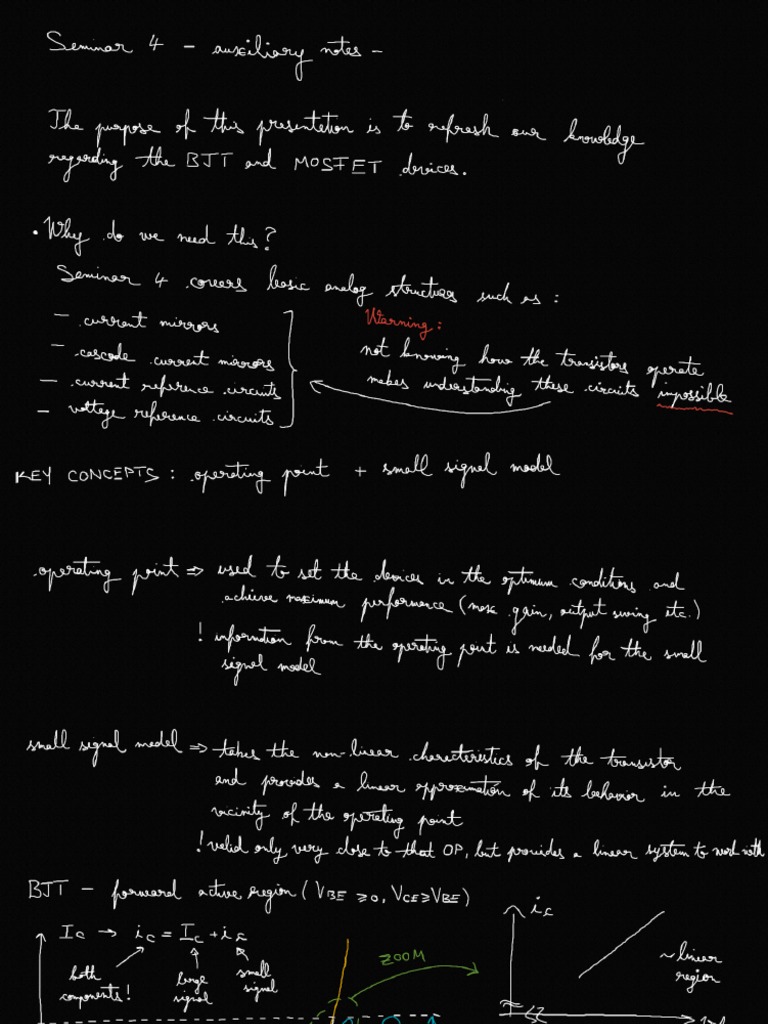 Seminar 4 - auxiliary notes -
The purpose of this presentation is to refresh our knowledge
regarding the BJT and MOSFET devices.
• Why do we need this?
Seminar 4 covers basic analog structures such as :
- current mirrors
- cascode current mirrors
- current reference circuits
- voltage reference circuits
Warning:
not knowing how the transistors operate
makes understanding these circuits impossible
KEY CONCEPTS : operating point + small signal model
operating point => used to set the devices in the optimum conditions and
achieve maximum performance (max gain, output swing etc.)
! information from the operating point is needed for the small
signal model
small signal model => takes the non-linear characteristics of the transistor
and provides a linear approximation of its behavior in the
vicinity of the operating point
! valid only very close to that OP, but provides a linear system to work with
BJT - forward active region (VBE ≥0, VCE≥VBE)
IC → iC = IC + ic
both
components!
large
signal
small
signal
ZOOM
ic
~ linear
region